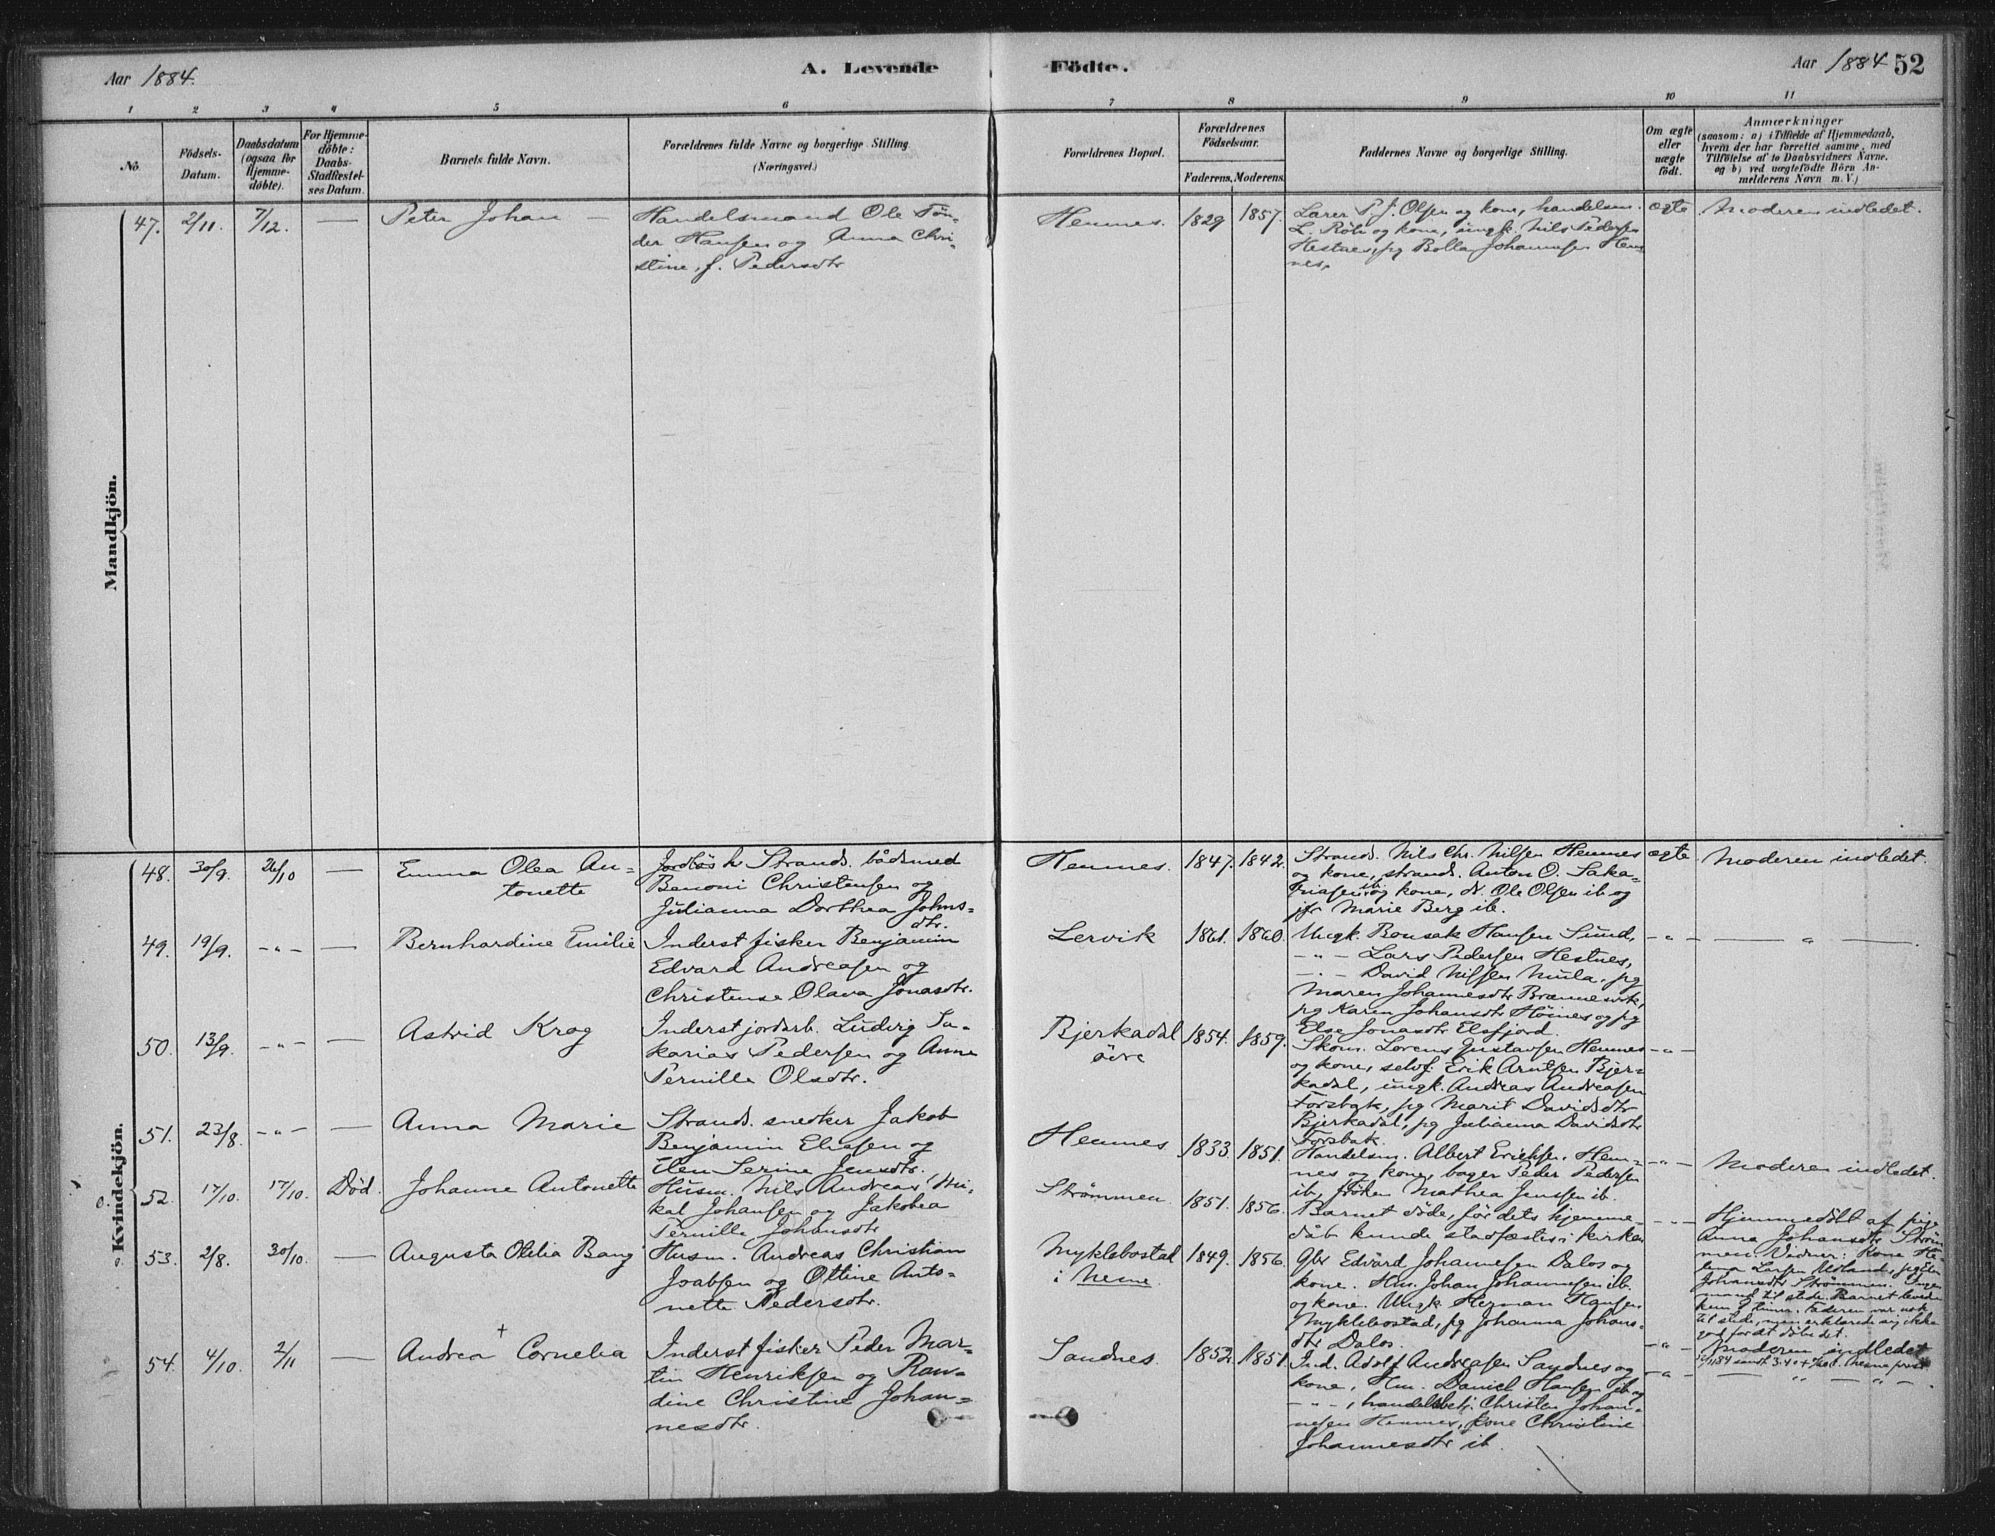 Aar 1884.
A. Levende Födte.
Aar 1884 52
1 2 3 4 5 6 7 8 9 10 11
No.
Födsels-
Datum.
Daabsdatum
(ogsaa for
Hjemme-
döbte).
For Hjemme-
döbte:
Daabs-
Stadfæstel-
ses Datum.
Barnets fulde Navn.
Forældrenes fulde Navne og borgerlige Stilling
(Næringsvei.)
Forældrenes Bopæl.
Forældrenes
Födselsaar.
Faderens. Moderens.
Faddernes Navne og borgerlige Stilling.
Om ægte
eller
uægte
födt.
Anmærkninger
(saasom: a) i Tilfælde af Hjemmedaab,
hvem der har forrettet samme, med
Tilföielse af to Daabsvidners Navne.
og b) ved uægtefödte Börn An-
melderens Navn m. V.)
Mandkjön.
47. 2/11 7/12. — Peter Johan —
Handelsmand Ole Tön-
der Hansen og Anna Chri-
stine, f. Pedersdtr
Hemnes. 1829 1857.
Lærer P. J. Olsen og kone, handelsm.
L. Röli og kone, ungk. Nils Pedersen
Hestnes, pg Bolla Johannsen Hem
nes.
ægte Moderen indledet.
Kvindekjön.
48. 30/9. 26/10 — Emma Olea An-
tonette
Jordløs h Strands. bådsmed
Benoni Christensen og
Julianna Dorthea Johns-
dtr.
Hemnes. 1847. 1842.
Strands. Nils Chr. Nilsen Hemnes
og kone, strands. Anton O. Saka-
riasen ib. og kone, Ole Olsen ib og
jfr Marie Berg ib.
ægte Moderen indledet.
49. 19/9. -"- — Bernhardine Emilie
Inderst fisker Benjamin
Edvard Andreasen og
Christense Olava Jonasdtr.
Lervik 1861. 1860.
Ungk. Bonsak Hansen Sund,
-"- Lars Pedersen Hestnes,
-"- David Nilssen Mula, pg
Maren Johannesdtr Brennesvik,
pg Karen Johansdtr Höines og pg
Else Jonasdtr Elsfjord.
-"- — " —
50. 13/9. -"- — Astrid Krog
Inderst jordarb. Ludvig Sa-
karias Pedersen og Anne
Pernille Olsdtr.
Bjerkadal
øvre
1854. 1859.
Skom. Lorens Gustavsen Hemnes
og kone, selvf. Erik Arntsen Bjer-
kadal, ungk. Andreas Andreasen
Forsbak, pg Marit Davidsdtr
Bjerkadal, pg Julianna Davidsdtr
Forsbak.
-"-
51. 23/8. -"- — Anna Marie
Strands. snedker Jakob
Benjamin Eliasen og
Elen Serine Jensdtr.
Hemnes 1833. 1851.
Handelsm. Albert Eriksen Hem-
nes og kone, bager Peder Pedersen
ib, frøken Mathea Jenssen ib.
-"- Moderen indledet.
52. 17/10. 17/10. Död. Johanne Antonette
Husm. Nils Andreas Mi-
kal Johansen og Jakobea
Pernille Johansdtr
Strømmen 1851. 1856.
Barnet døde, før dets hjemme-
dåb kunde stadfæstes i kirken
-"-
Hjemmedöbt af pige
Anna Johansdtr Strøm
men. Vidner: Kone He-
lena Larsen Utland, pg Elen
Johansdtr Strømmen. Ingen
mand til stede. Barnet levede
kun 2 timer. Faderen var nok
til stede, men erklærede sig ikke
god for at döbe det.
53. 2/8. 30/10. — Augusta Otelia Bang
Husm. Andreas Christian
Joabsen og Ottine Anto-
nette Pedersdtr.
Myklebostad
i Nesne.
1849. 1856.
Gbr Edvard Johannesen Dalos og
kone. Hm. Johan Johannesen ib.
og kone. Ungk. Herman Hansen
Myklebostad, pg Johanna Johans-
dtr Dalos.
-"- Moderen indledet
54. 4/10. 2/11 — Andrea Cornelia
Inderst fisker Peder Mar-
tin Henriksen og Ran-
dine Christine Johan-
nesdtr.
Sandnes. 1852. 1851
Ind. Adolf Andreasen Sandnes og
kone, Hm. Daniel Hansen ib og
-"-, handelsbetj. Christen Johan-
nesen Hemnes, kone Christine
Johannesdtr ib.
-"- — " — " —